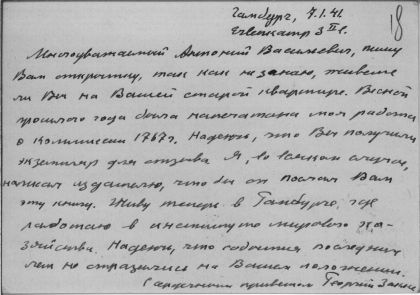 Гамбург, 7.1.41.
18
3 II r.
Многоуважаемый Антоний Васильевич, пишу
Вам открытку, так как не знаю, живете
ли Вы на Вашей старой квартире. Весной
прошлого года была напечатана моя работа
о комиссии 1767 г. Надеюсь, что Вы получили
экземпляр для отзыва. Я, во всяком случае,
написал издателю, что бы он послал Вам
эту книгу. Живу теперь в Гамбурге, где
работаю в институте мирового хо-
зяйства. Надеюсь, что события последних
лет не отразились на Вашем положении.
С сердечным приветом Георгий